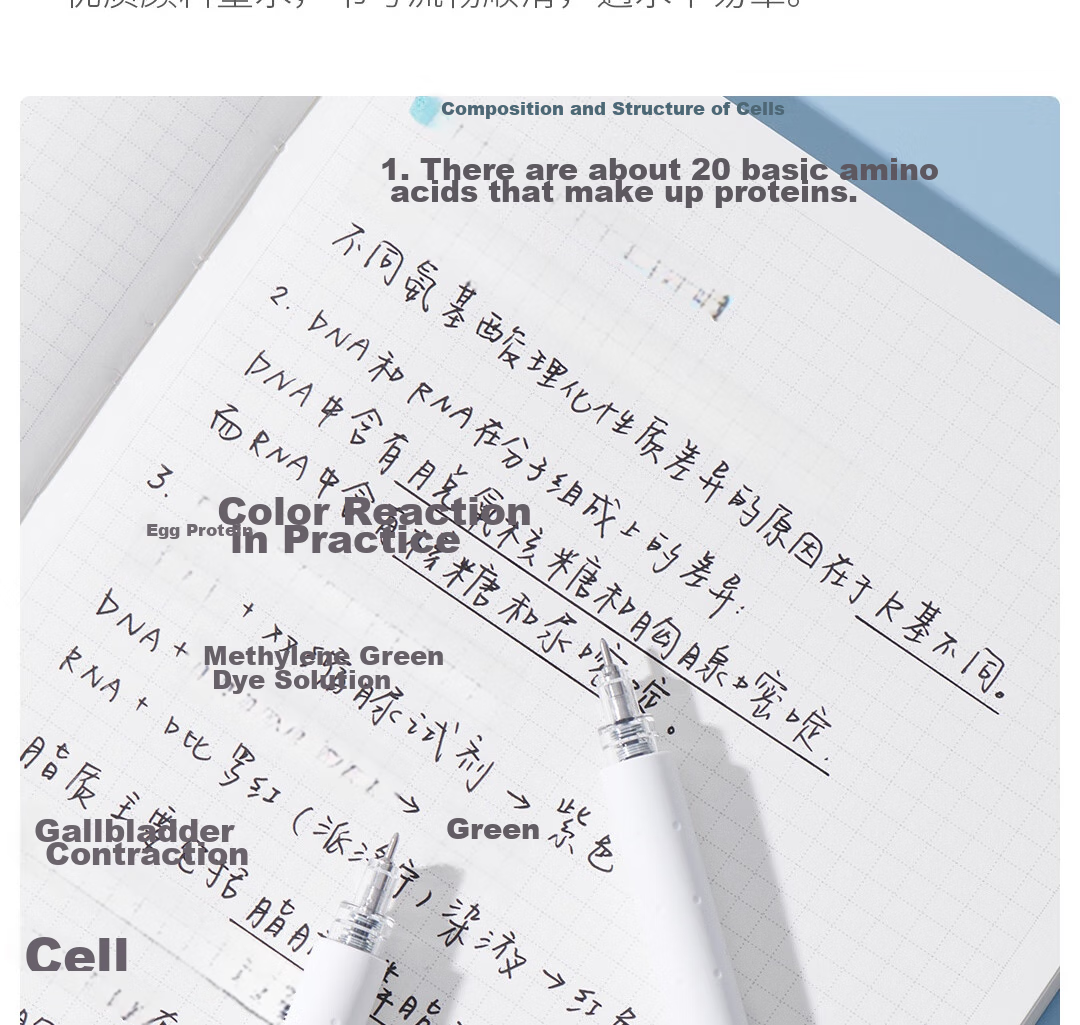 Composition and Structure of Cells
1. There are about 20 basic amino
acids that make up proteins.
不同氨基酸理化性质差异的原因在于R基不同。
2. DNA和RNA在分子组成上的差异:
DNA中含有脱氧核糖和胸腺嘧啶.
而RNA中含有核糖和尿嘧啶。
3.
Color Reaction
in Practice
Egg Protein
+ 双缩脲试剂 → 紫色
DNA +
Methylene Green
Dye Solution
→
Green
RNA + 吡罗红(派洛宁)染液 → 红色
脂质主要包括脂肪
Gallbladder
Contraction
Cell